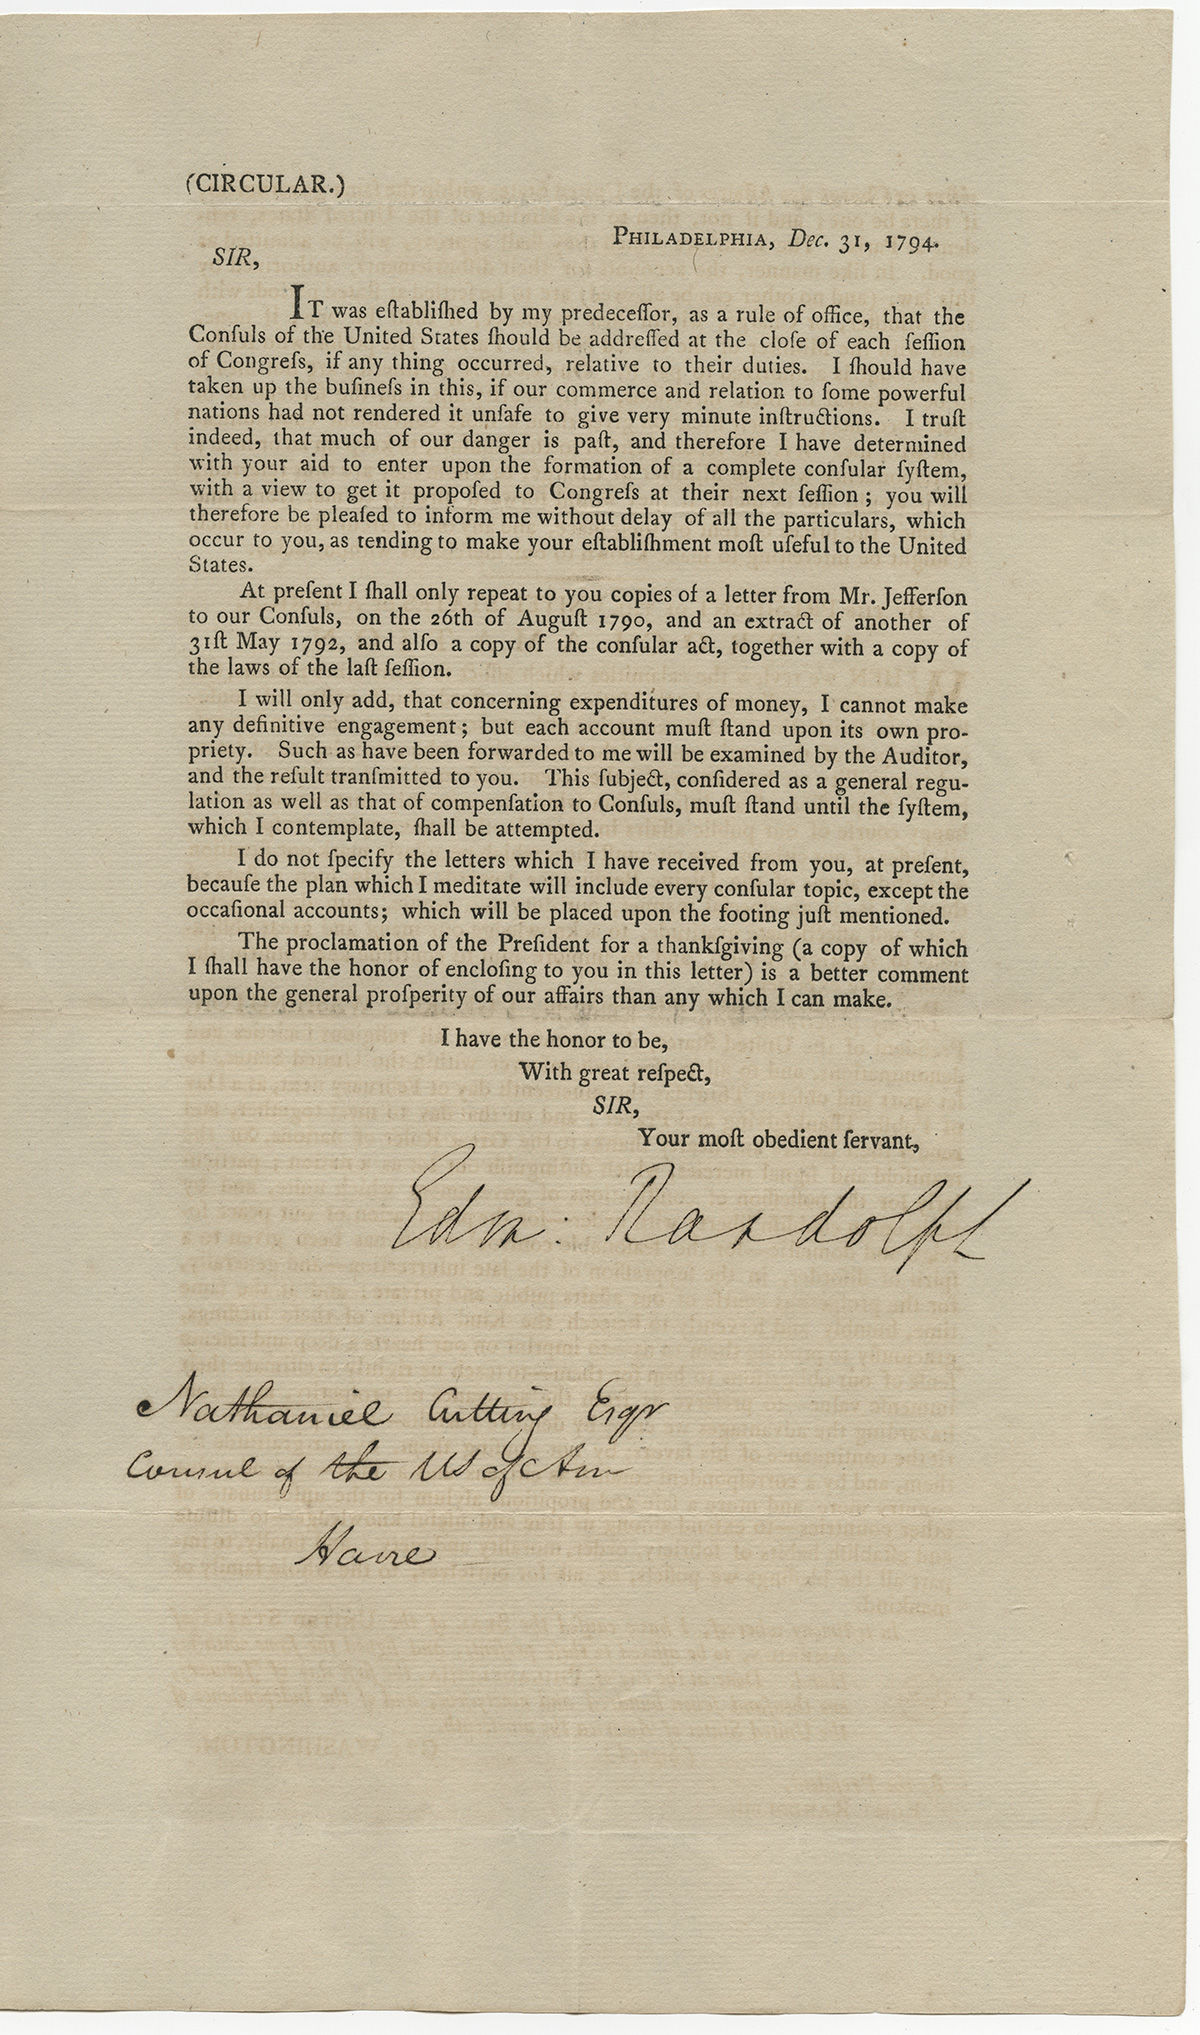 (CIRCULAR.)
PHILADELPHIA, Dec. 31, 1794.
SIR,
IT was eſtabliſhed by my predeceſſor, as a rule of office, that the
Conſuls of the United States ſhould be addreſſed at the cloſe of each ſeſſion
of Congreſs, if any thing occurred, relative to their duties. I ſhould have
taken up the buſineſs in this, if our commerce and relation to ſome powerful
nations had not rendered it unſafe to give very minute inſtructions. I truſt
indeed, that much of our danger is paſt, and therefore I have determined
with your aid to enter upon the formation of a complete conſular ſyſtem,
with a view to get it propoſed to Congreſs at their next ſeſſion; you will
therefore be pleaſed to inform me without delay of all the particulars, which
occur to you, as tending to make your eſtabliſhment moſt uſeful to the United
States.
At preſent I ſhall only repeat to you copies of a letter from Mr. Jefferſon
to our Conſuls, on the 26th of Auguſt 1790, and an extract of another of
31ſt May 1792, and alſo a copy of the conſular act, together with a copy of
the laws of the laſt ſeſſion.
I will only add, that concerning expenditures of money, I cannot make
any definitive engagement; but each account muſt ſtand upon its own pro-
priety. Such as have been forwarded to me will be examined by the Auditor,
and the reſult tranſmitted to you. This ſubject, conſidered as a general regu-
lation as well as that of compenſation to Conſuls, muſt ſtand until the ſyſtem,
which I contemplate, ſhall be attempted.
I do not ſpecify the letters which I have received from you, at preſent,
becauſe the plan which I meditate will include every conſular topic, except the
occaſional accounts; which will be placed upon the footing juſt mentioned.
The proclamation of the Preſident for a thankſgiving (a copy of which
I ſhall have the honor of encloſing to you in this letter) is a better comment
upon the general proſperity of our affairs than any which I can make.
I have the honor to be,
With great reſpect,
SIR,
Your moſt obedient ſervant,
Edm: Randolph
Nathaniel Cutting Esqr
Consul of the US of Am
Havre